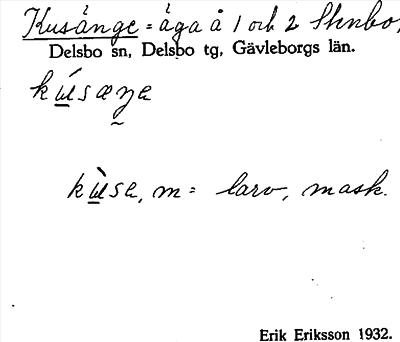 Kusänge = äga å 1 och 2 Stenbo,
Delsbo sn, Delsbo tg, Gävleborgs län.
kúsæŋe
kùse, m = larv, mask.
Erik Eriksson 1932.